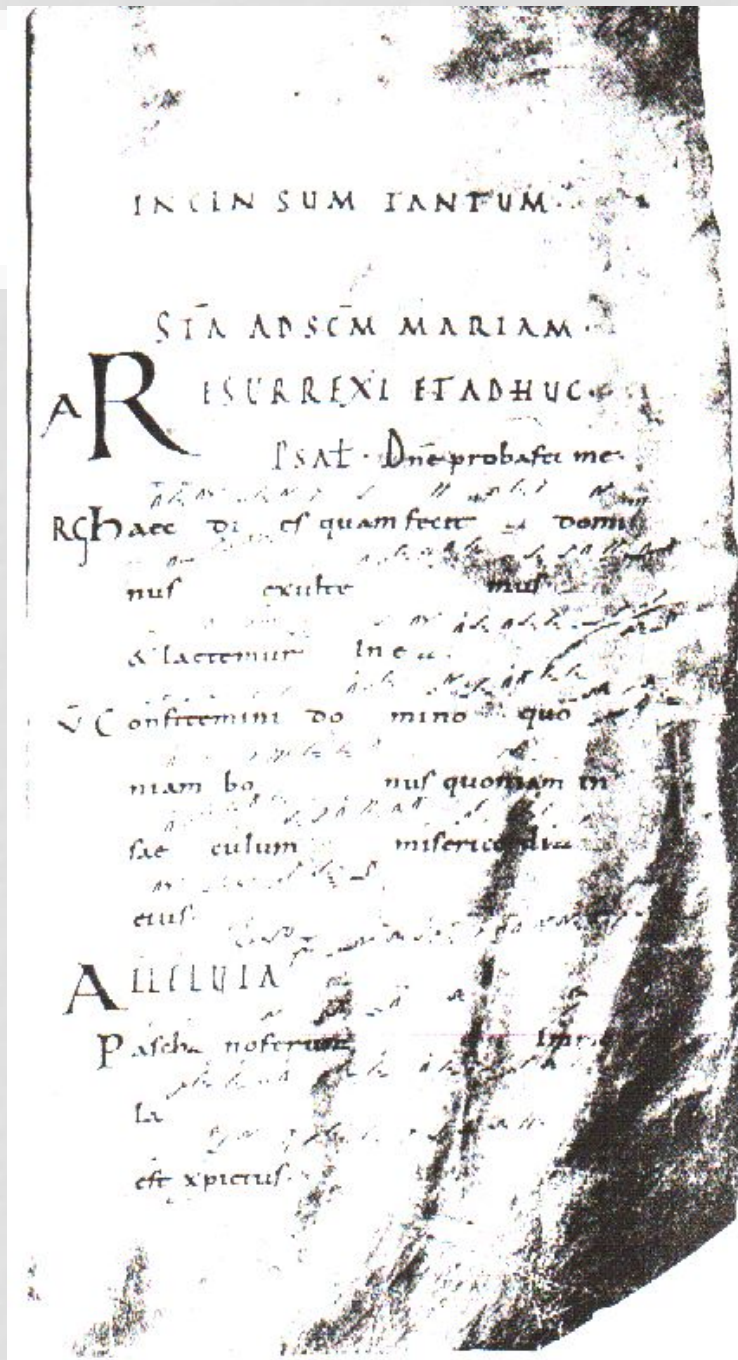 IN CENSUM TANTUM
STA AD SCM MARIAM
A RESURREXI ET ADHUC
PSAL. Dne probasti me
RG haec di es quam fecit domi
nus exulte mus
& laetemur In ea
V Confitemini do mino quo
niam bo nus quoniam in
sae culum misericordia
eius
ALLELUIA
Pascha nostrum Immo
la
est xpictus